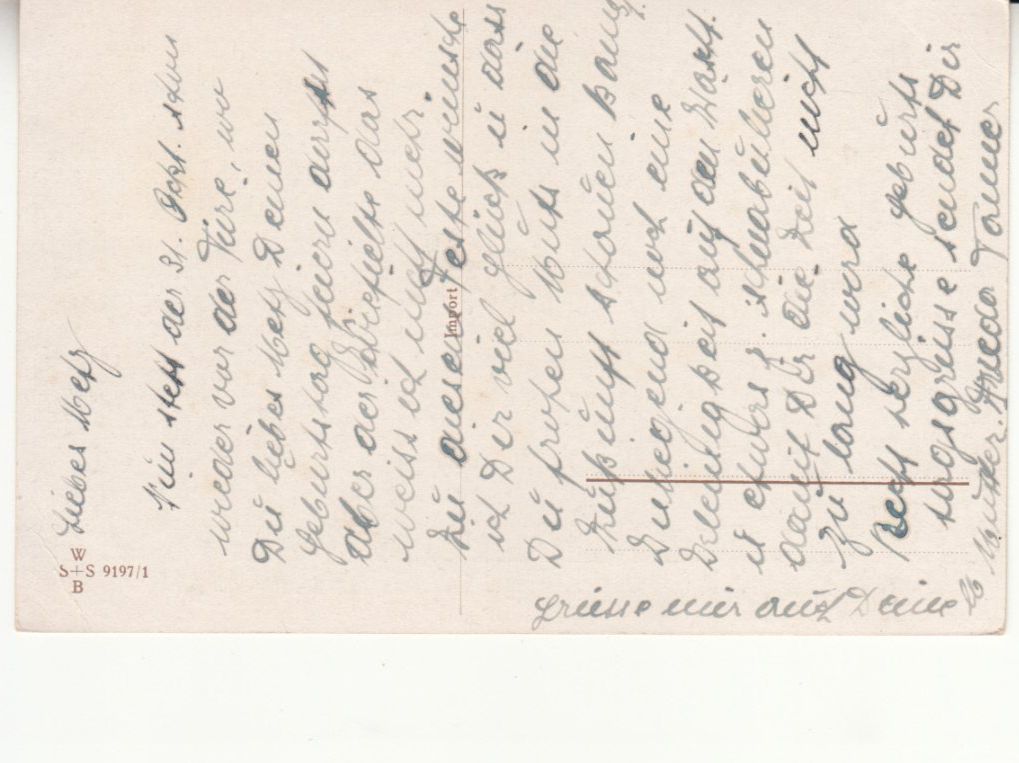 Liebes Metz
Nun steht der 31. Okt. schon
wieder vor der Türe, wo
Du liebes Metz Deinen
Geburtstag feiern darfst
Aber der Wievielte das
weiss ich nicht mehr.
Zu diesem Feste wünsche
ich Dir viel Glück u dass
Du frohen Muts in die
Zukunft schauen kannst.
noch eine
auf den
u etwas z. schnabulieren
damit Dir die Zeit nicht
zu lang wird
Recht herzliche Geburts
tagsgrüsse sendet Dir
Frieda Tanner
Grüsse mir auch Deine lb Mutter.
W
S+S 9197/1
B
Import